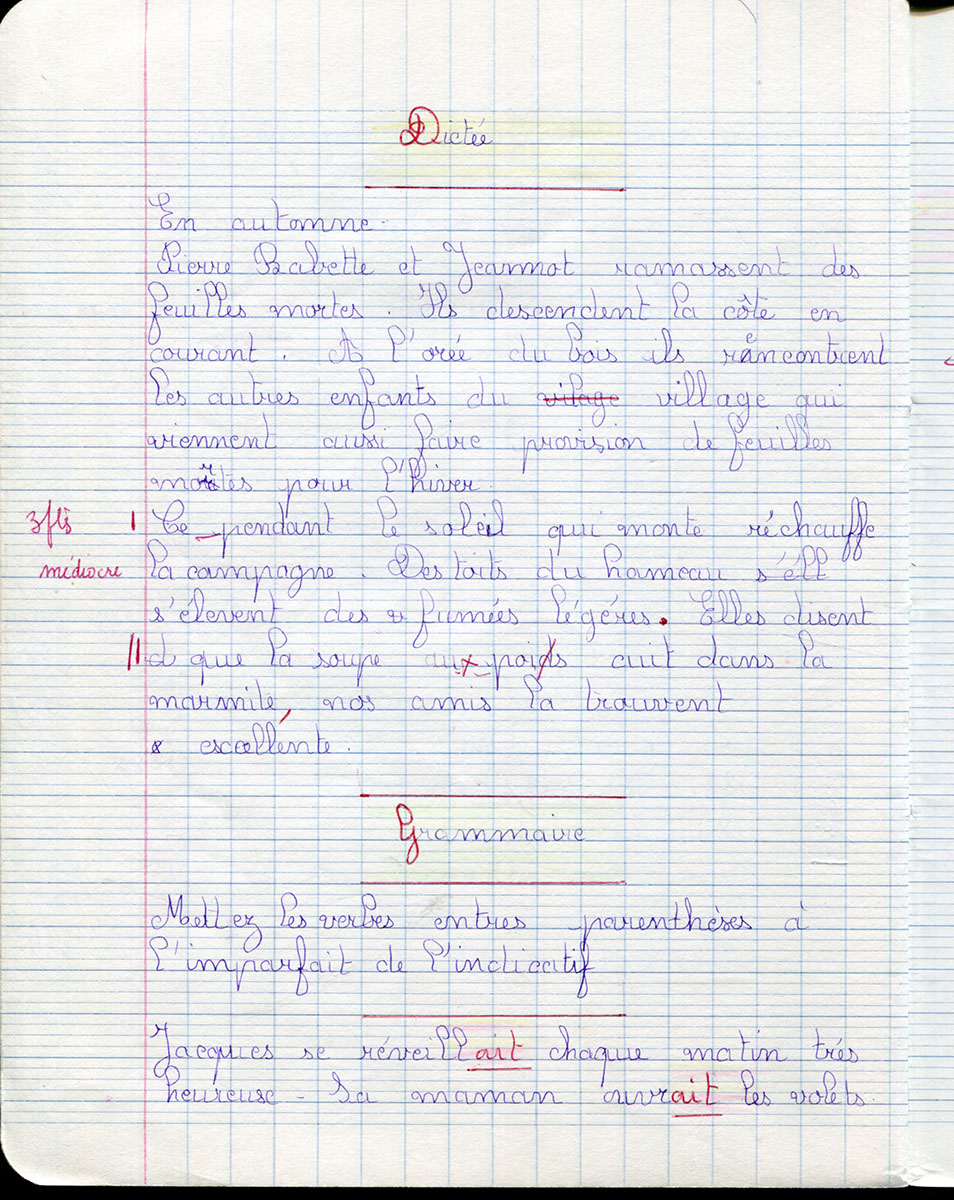 Dictée
En automne.
Pierre Babette et Jeannot ramassent des
feuilles mortes. Ils descendent la côte en
courant. A l'orée du bois ils rencontrent
les autres enfants du vilage village qui
viennent aussi faire provision de feuilles
mortes pour l'hiver.
3 fts | Ce_pendant le soleil qui monte réchauffe
médiocre la campagne. Des toits du hameau s'éll
s'élevent des fumées légéres. Elles disent
|| d que la soupe aux poids cuit dans la
marmite, nos amis la trouvent
escellénte.
Grammaire
Mettez les verbes entres parenthèses à
l'imparfait de l'indicatif
Jacques se réveillait chaque matin trés
heureuse - Sa maman ouvrait les volets.